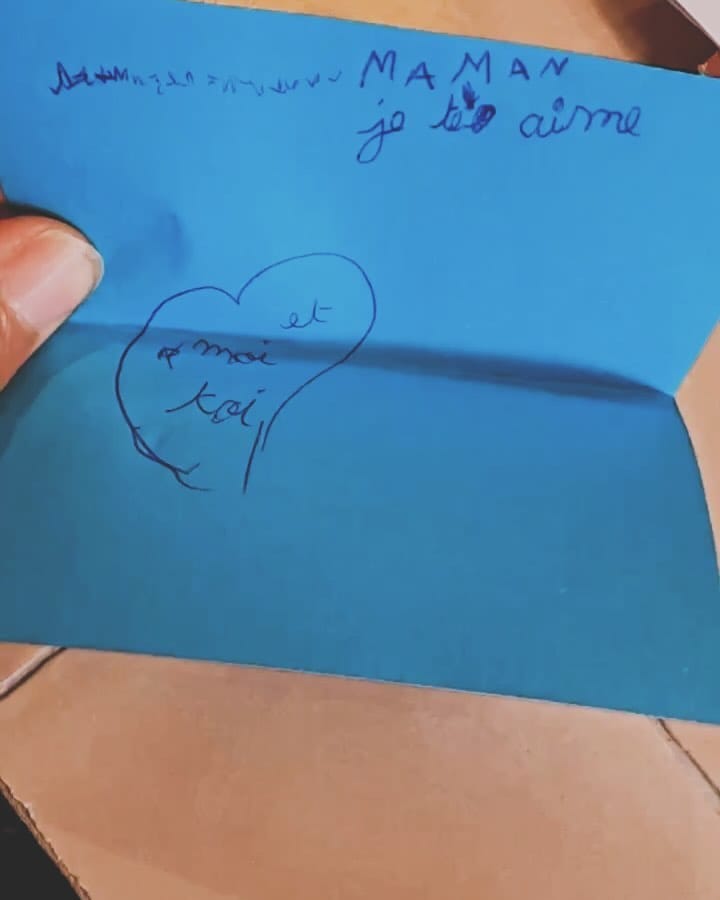 MAMAN
je te aime
et
moi
toi